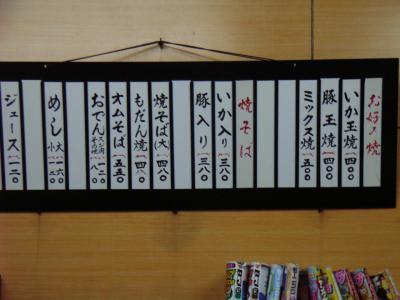 お好み焼
いか玉焼 一、四〇〇
豚玉焼 一、四〇〇
ミックス焼 一、五〇〇
焼そば
いか入り 一、三八〇
豚入り 一、三八〇
焼そば(大) 一、四八〇
もだん焼 一、四八〇
オムそば 一、五五〇
おでん
めし
大
小
ジュース 一、一二〇